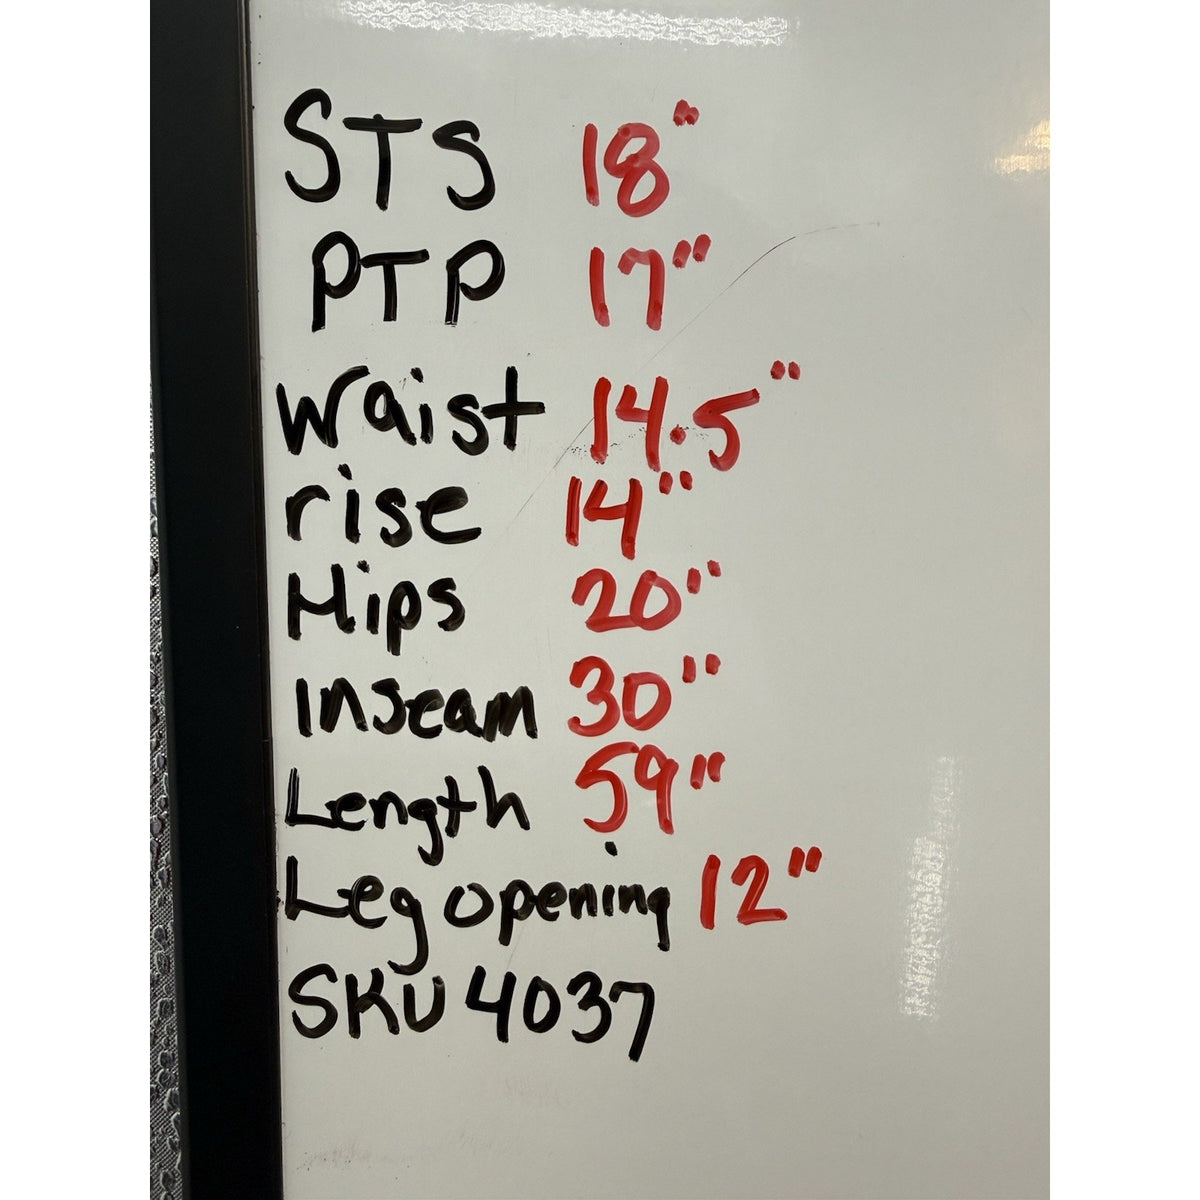 STS 18"
PTP 17"
Waist 14.5"
rise 14"
Hips 20"
Inseam 30"
Length 59"
Leg opening 12"
SKU 4037